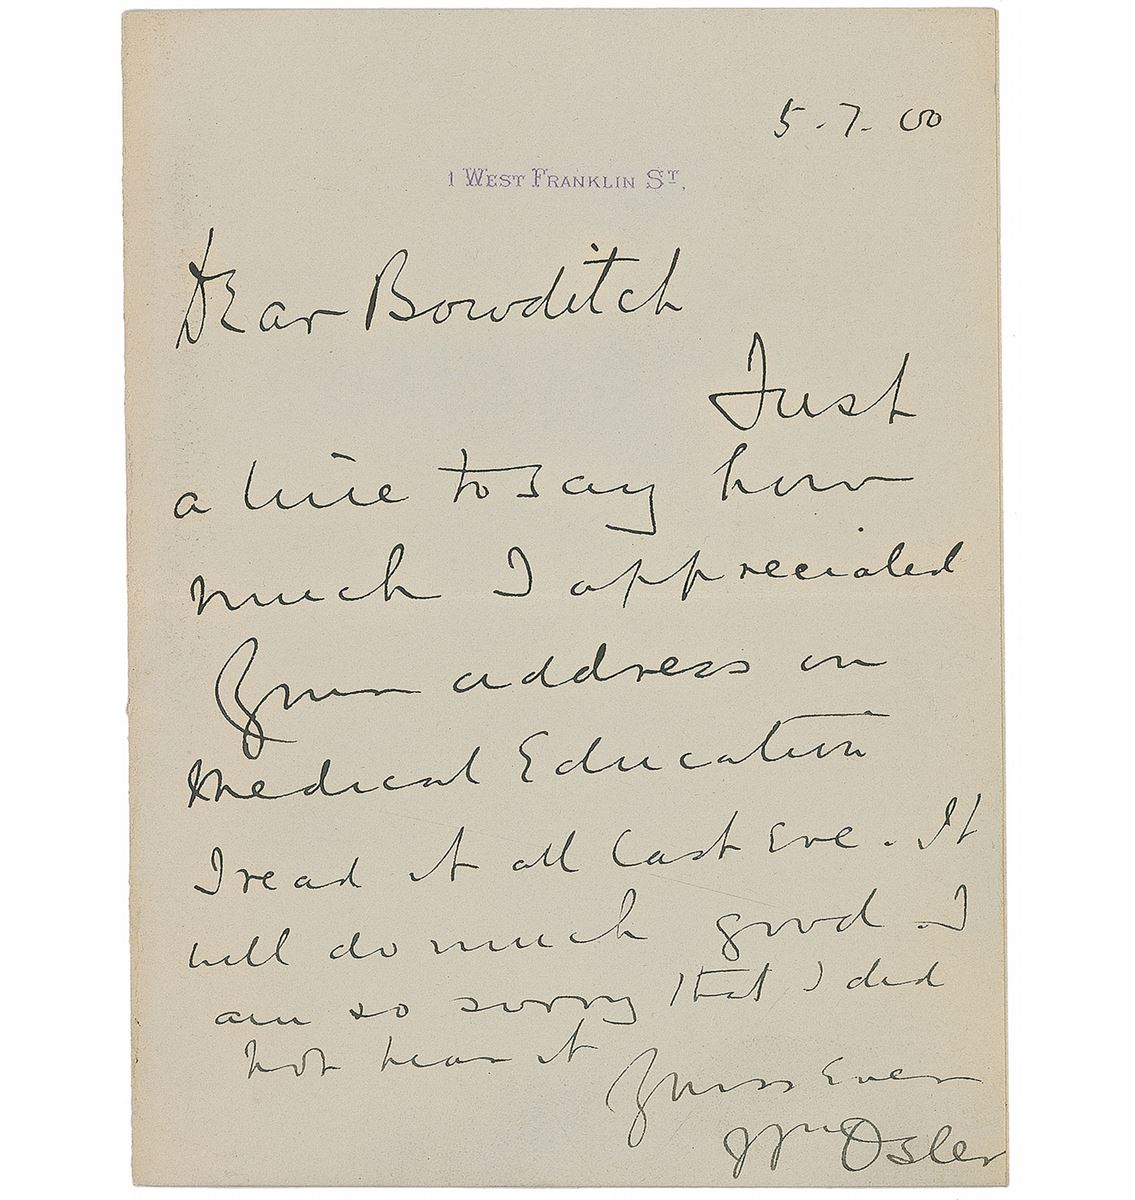 5.7.00
1 WEST FRANKLIN ST.
Dear Bowditch
Just
a line to say how
much I appreciated
your address on
Medical Education
I read it all last eve. It
will do much good. I
am so sorry that I did
not hear it
Yours Ever
Wm Osler